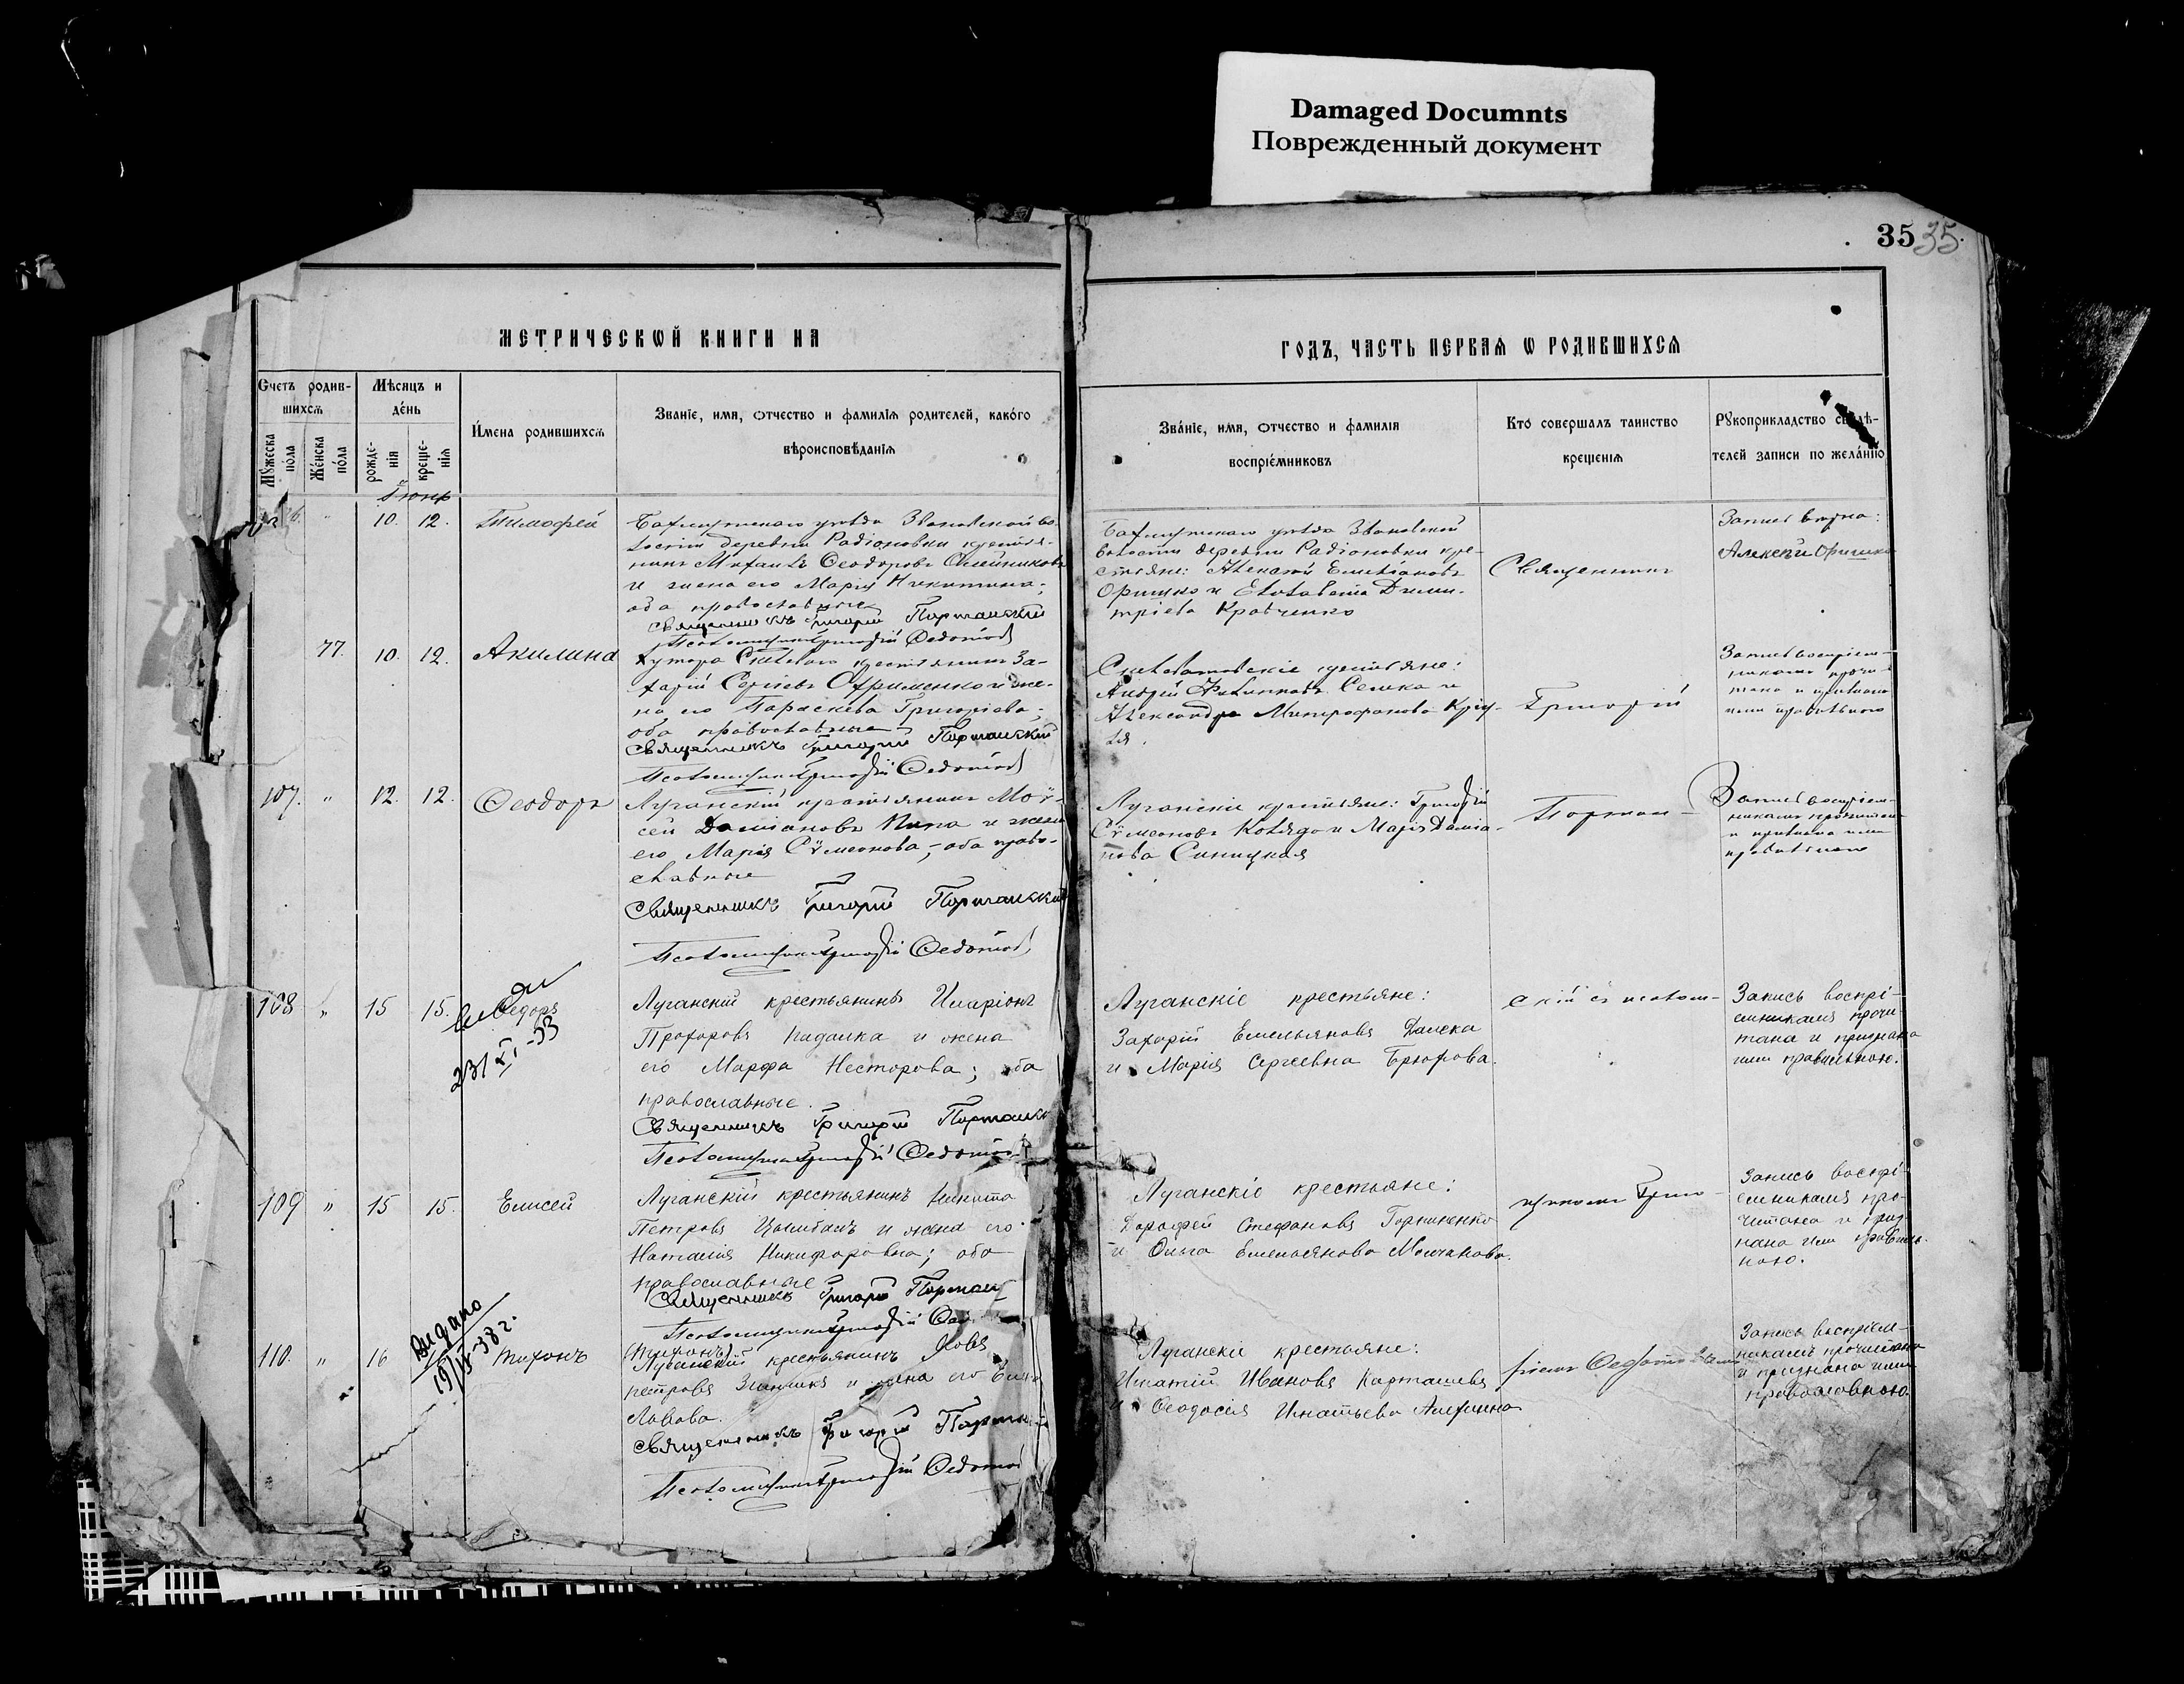 Damaged Documnts
Поврежденный документ
35 35.
МЕТРИЧЕСКОЙ КНИГИ НА
ГОДЪ, ЧАСТЬ ПЕРВАЯ Ѡ РОДИВШИХСЯ
Счетъ родив-
шихсѧ
Мꙋжеска
пола
Же́нска
по́ла
Мѣсяцъ и
де́нь
рожде-
нїѧ
креще-
нїѧ
И́мена родившихсѧ
Званїе, имѧ, ѻтчество и фамилїѧ родителей, како́го
вѣроисповѣданїѧ
Зва́нїе, имѧ, ѻтчество и фамилїѧ
воспрїе́мниковъ
Кто́ совершалъ таинство
крещенїѧ
Рꙋкоприкладство свидѣ-
телей записи по жела́нїю
Іюнь
10. 12. Тимофей
Бахмутскаго уѣзда Звановской во-
лости деревни Радіоновки крестья-
нинъ Михаилъ Ѳеодоровъ Олейниковъ
и жена его Марія Никитина;
оба православные
Священникъ Григорій Порта́нскій
Псаломщикъ Григорій Ѳедотов
Бахмутскаго уѣзда Звановской
волости деревни Радіоновки кре-
стьяне: Алексѣй Емеліановъ
Оришко и Елизавета Дими-
тріева Кравченко
Священникъ
Запись вѣрна:
Алексѣй Оришко
77. 10. 12. Акилина
Хутора крестьянинъ За-
харій Сергіевъ Охрименко и же-
на его Параскева Григоріева;
оба православные
Священникъ Григорій Портанскій
Псаломщикъ Григорій Ѳедотов
крестьяне:
Андрей Семка и
Александра Митрофанова
Григорій
Запись воспріем-
никами прочи-
тана и признана
ими правильною
107. " 12. 12. Ѳеодоръ
Луганскій крестьянинъ Моѵ-
сей Даміановъ и жена
его Марія Сѵмеонова; оба право-
славные
Священникъ Григорій Портанскій
Псаломщикъ Григорій Ѳедотов
Луганскіе крестьяне: Григорій
Сѵмеоновъ Коляда и Марія Даміа-
нова Синицкая
Портан-
Запись воспріем-
никами прочитана
и признана ими
правильною
108 " 15 15. Ѳедоръ
23/XI-33
Луганскій крестьянинъ Иларіонъ
Прохоровъ и жена
его Марфа Несторова; оба
православные.
Священникъ Григорій Портанск
Псаломщикъ Григорій Ѳедотов
Луганскіе крестьяне:
Захарій Емельяновъ
и Марія Сергѣевна Брюхова.
скій съ псалом-
Запись воспрі-
емниками прочи
тана и признана
ими правильною.
109 " 15 15. Елисей
Луганскій крестьянинъ Никита
Петровъ Цымбалъ и жена его
Наталія Никифоровна; оба
православные
Священникъ Григорій Портан
Псаломщикъ Григорій Ѳед
Луганскіе крестьяне:
Дорофей Стефановъ Горниненко
и Ольга Емельянова Молчанова.
щикомъ Григо-
Запись воспрі-
емниками про-
читана и приз-
нана ими правиль-
ною.
110. " 16 Тихонъ
Видано
19/IV-38 г.
(Тихонъ)
Луганскій крестьянинъ Яковъ
Петровъ и жена его
Львова.
Священникъ Григорій Портан
Псаломщикъ Григорій Ѳедотов
Луганскіе крестьяне:
Игнатій Ивановъ Карташевъ
и Ѳеодосія Игнатьева
ріемъ
Запись воспріем-
никами прочитана
и признана ими